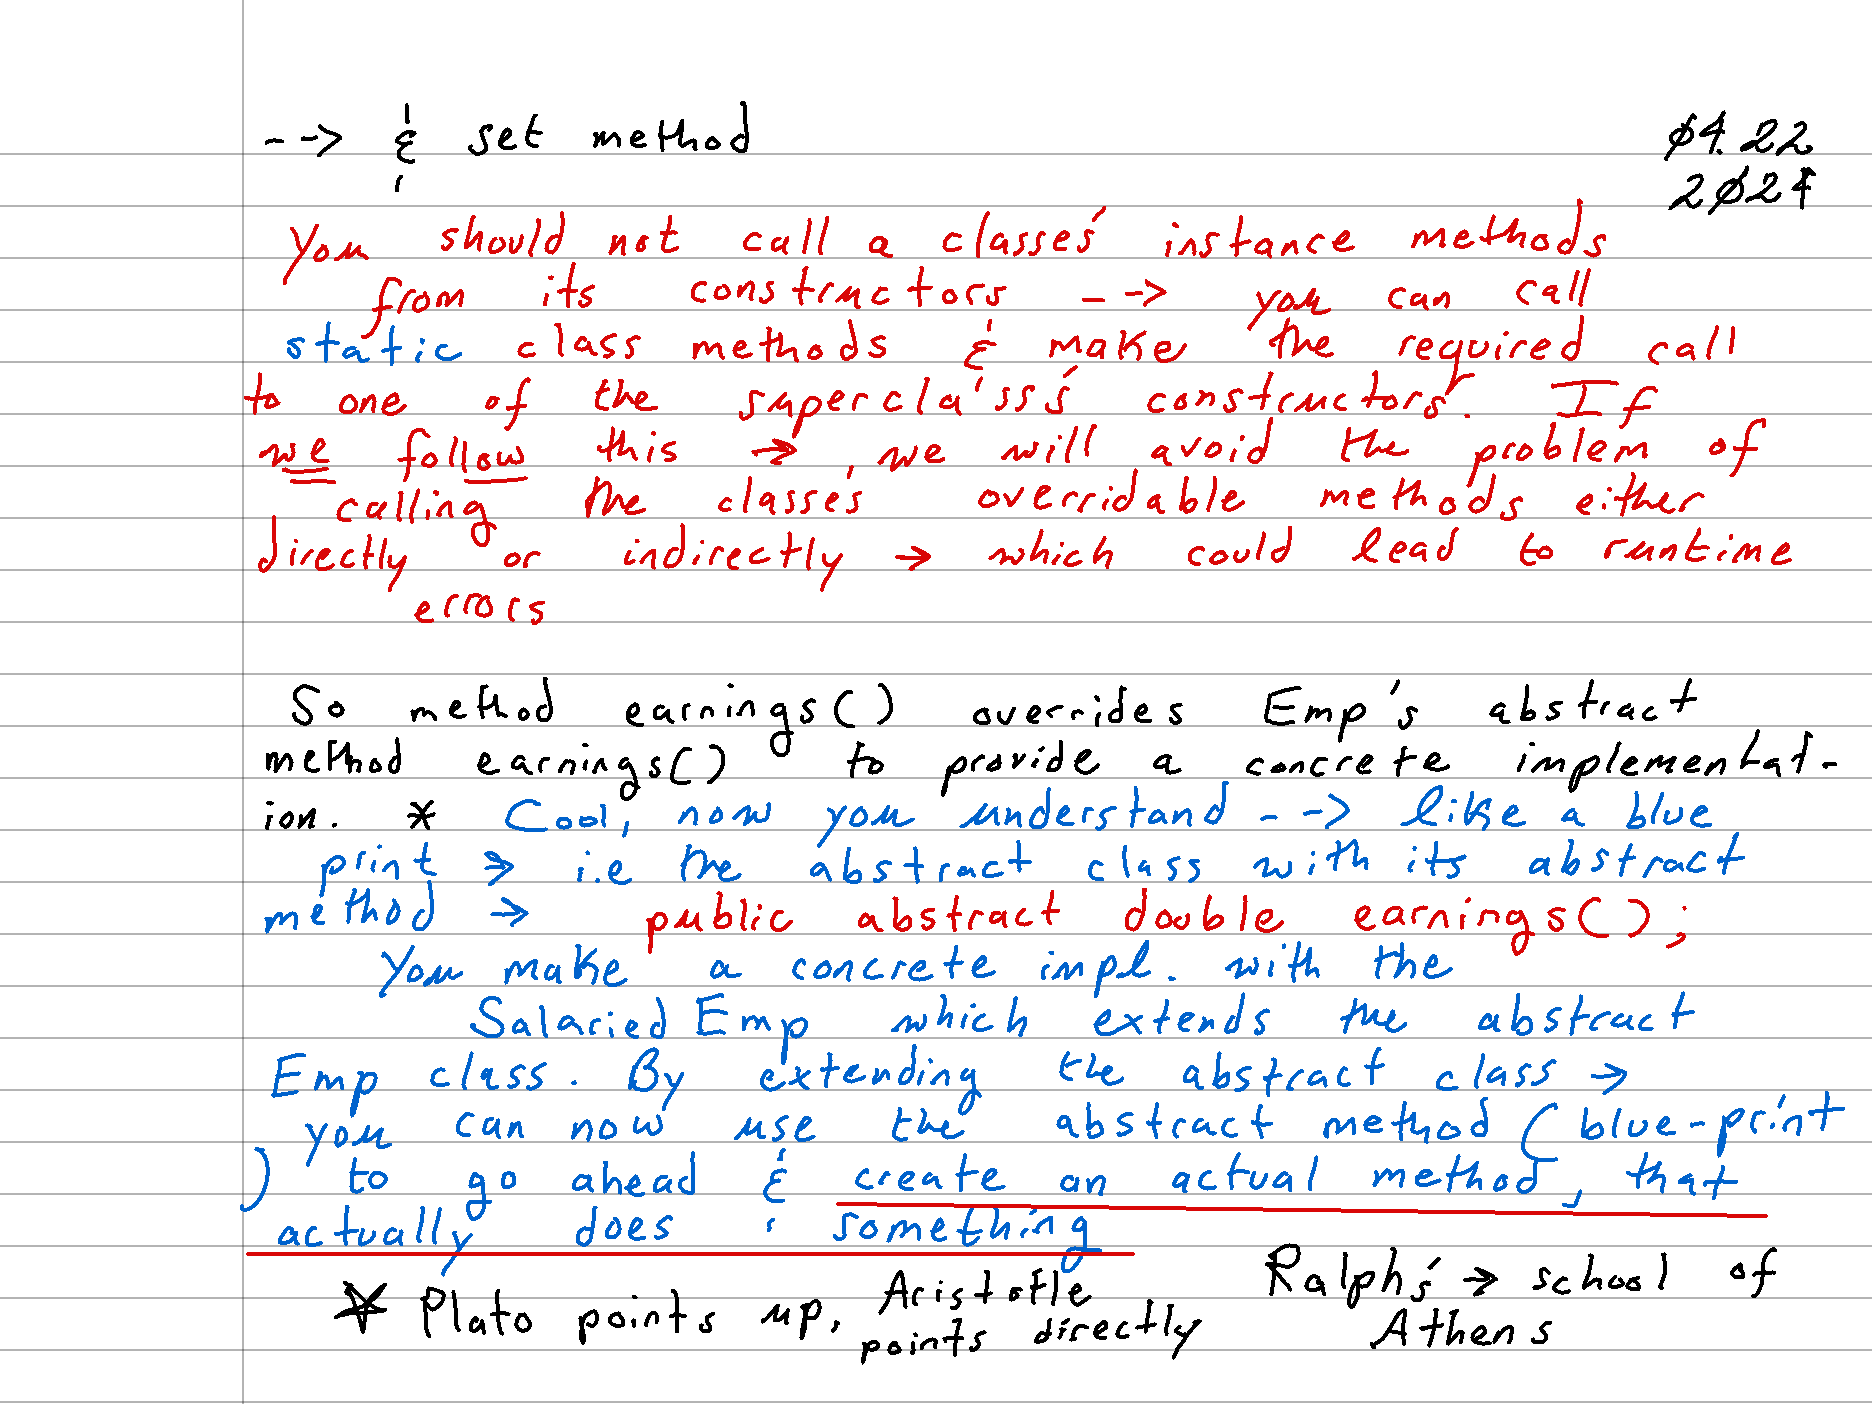 --> & set method
04.22
2024
You should not call a classes' instance methods
from its constructors --> you can call
static class methods & make the required call
to one of the supercla'ss's constructors. If
we follow this →, we will avoid the problem of
calling the classes overridable methods either
directly or indirectly → which could lead to runtime
errors
So method earnings() overrides Emp's abstract
method earnings() to provide a concrete implementat-
ion. * Cool, now you understand --> like a blue
print → i.e the abstract class with its abstract
method → public abstract double earnings();
You make a concrete impl. with the
Salaried Emp which extends the abstract
Emp class. By extending the abstract class →
you can now use the abstract method (blue-print
) to go ahead & create an actual method, that
actually does something
* Plato points up, Aristotle
points directly
Ralph's → school of
Athens